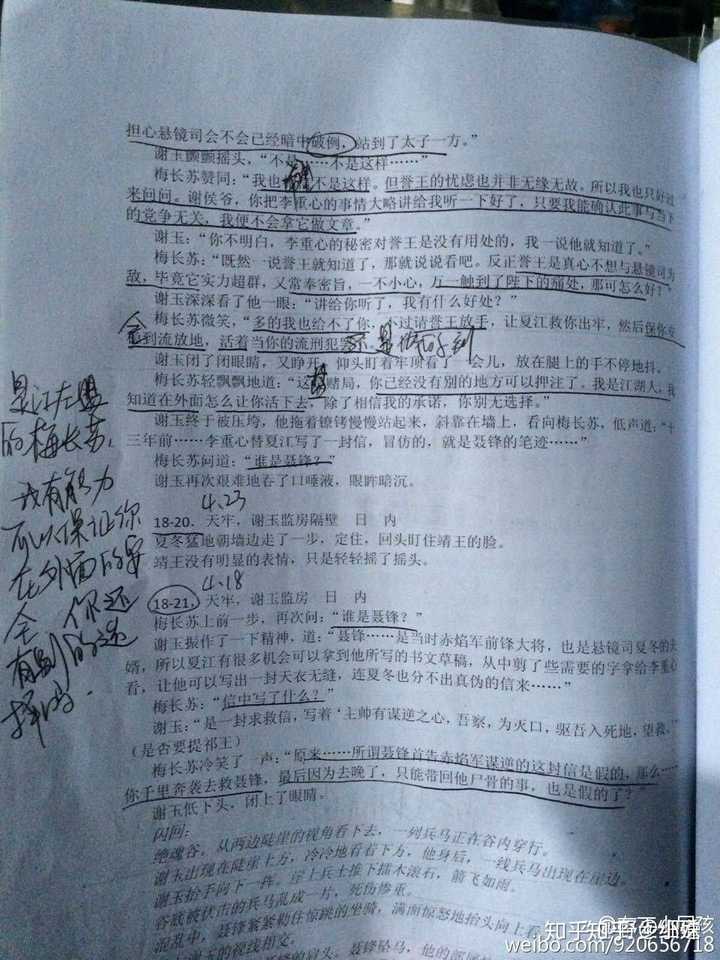 担心悬镜司会不会已经暗中破例，站到了太子一方。”
谢玉颤颤摇头，“不是……不是这样……”
梅长苏赞同：“我也 不是这样。但誉王的忧虑也并非无缘无故，所以我也只好过
来问问。谢侯爷，你把李重心的事情大略讲给我听一下好了，只要我能确认此事与当下
的党争无关，我便不会拿它做文章。”
谢玉：“你不明白，李重心的秘密对誉王是没有用处的，我一说他就知道了。”
梅长苏：“既然一说誉王就知道了，那就说说看吧。反正誉王是真心不想与悬镜司为
敌，毕竟它实力超群，又常奉密旨，一不小心，万一触到了陛下的痛处，那可怎么好？”
谢玉深深看了他一眼：“讲给你听了，我有什么好处？”
梅长苏微笑，“多的我也给不了你，不过请誉王放手，让夏江救你出牢，然后保你安
全到流放地，活着当你的流刑犯罢
是做得到
谢玉闭了闭眼睛，又睁开，仰头盯着牢顶看了一会儿，放在腿上的手不停地抖。
梅长苏轻飘飘地道：“这 赌局，你已经没有别的地方可以押注了。我是江湖人，我
知道在外面怎么让你活下去，除了相信我的承诺，你别无选择。”
谢玉终于被压垮，他拖着镣铐慢慢站起来，斜靠在墙上，看向梅长苏，低声道：“十
三年前……李重心替夏江写了一封信，冒仿的，就是聂锋的笔迹……”
梅长苏问道：“谁是聂锋？”
谢玉再次艰难地吞了口唾液，眼眸暗沉。
是江左盟
的梅长苏，
我有能力
可以保证你
在外面的安
全 你还
有别的选
择吗.
4.23
18-20. 天牢，谢玉监房隔壁 日 内
夏冬猛地朝墙边走了一步，定住，回头盯住靖王的脸。
靖王没有明显的表情，只是轻轻摇了摇头。
4.18
18-21. 天牢，谢玉监房 日 内
梅长苏上前一步，再次问：“谁是聂锋？”
谢玉振作了一下精神，道：“聂锋……是当时赤焰军前锋大将，也是悬镜司夏冬的夫
婿，所以夏江有很多机会可以拿到他所写的书文草稿，从中剪了些需要的字拿给李重心
看，让他可以写出一封天衣无缝，连夏冬也分不出真伪的信来……”
梅长苏：“信中写了什么？”
谢玉：“是一封求救信，写着‘主帅有谋逆之心，吾察，为灭口，驱吾入死地，望救。’”
（是否要提祁王）
梅长苏冷笑了一声：“原来……所谓聂锋首告赤焰军谋逆的这封信是假的，那么……
你千里奔袭去救聂锋，最后因为去晚了，只能带回他尸骨的事，也是假的了？”
谢玉低下头，闭上了眼睛。
闪回：
绝魂谷，从两边陡崖的视角看下去，一列兵马正在谷内穿行。
谢玉出现在陡崖上方，冷冷地看着下方，他身后，一线兵马出现在崖边。
谢玉抬手向下一挥。崖上兵士推下擂木滚石，箭飞如雨。
谷底被伏击的兵马乱成一片，死伤惨重。
混乱中，聂锋紧紧勒住惊跳的坐骑，满面惊怒地抬头向上看
谢玉的视线相交。
知乎
weibo.com/920656718